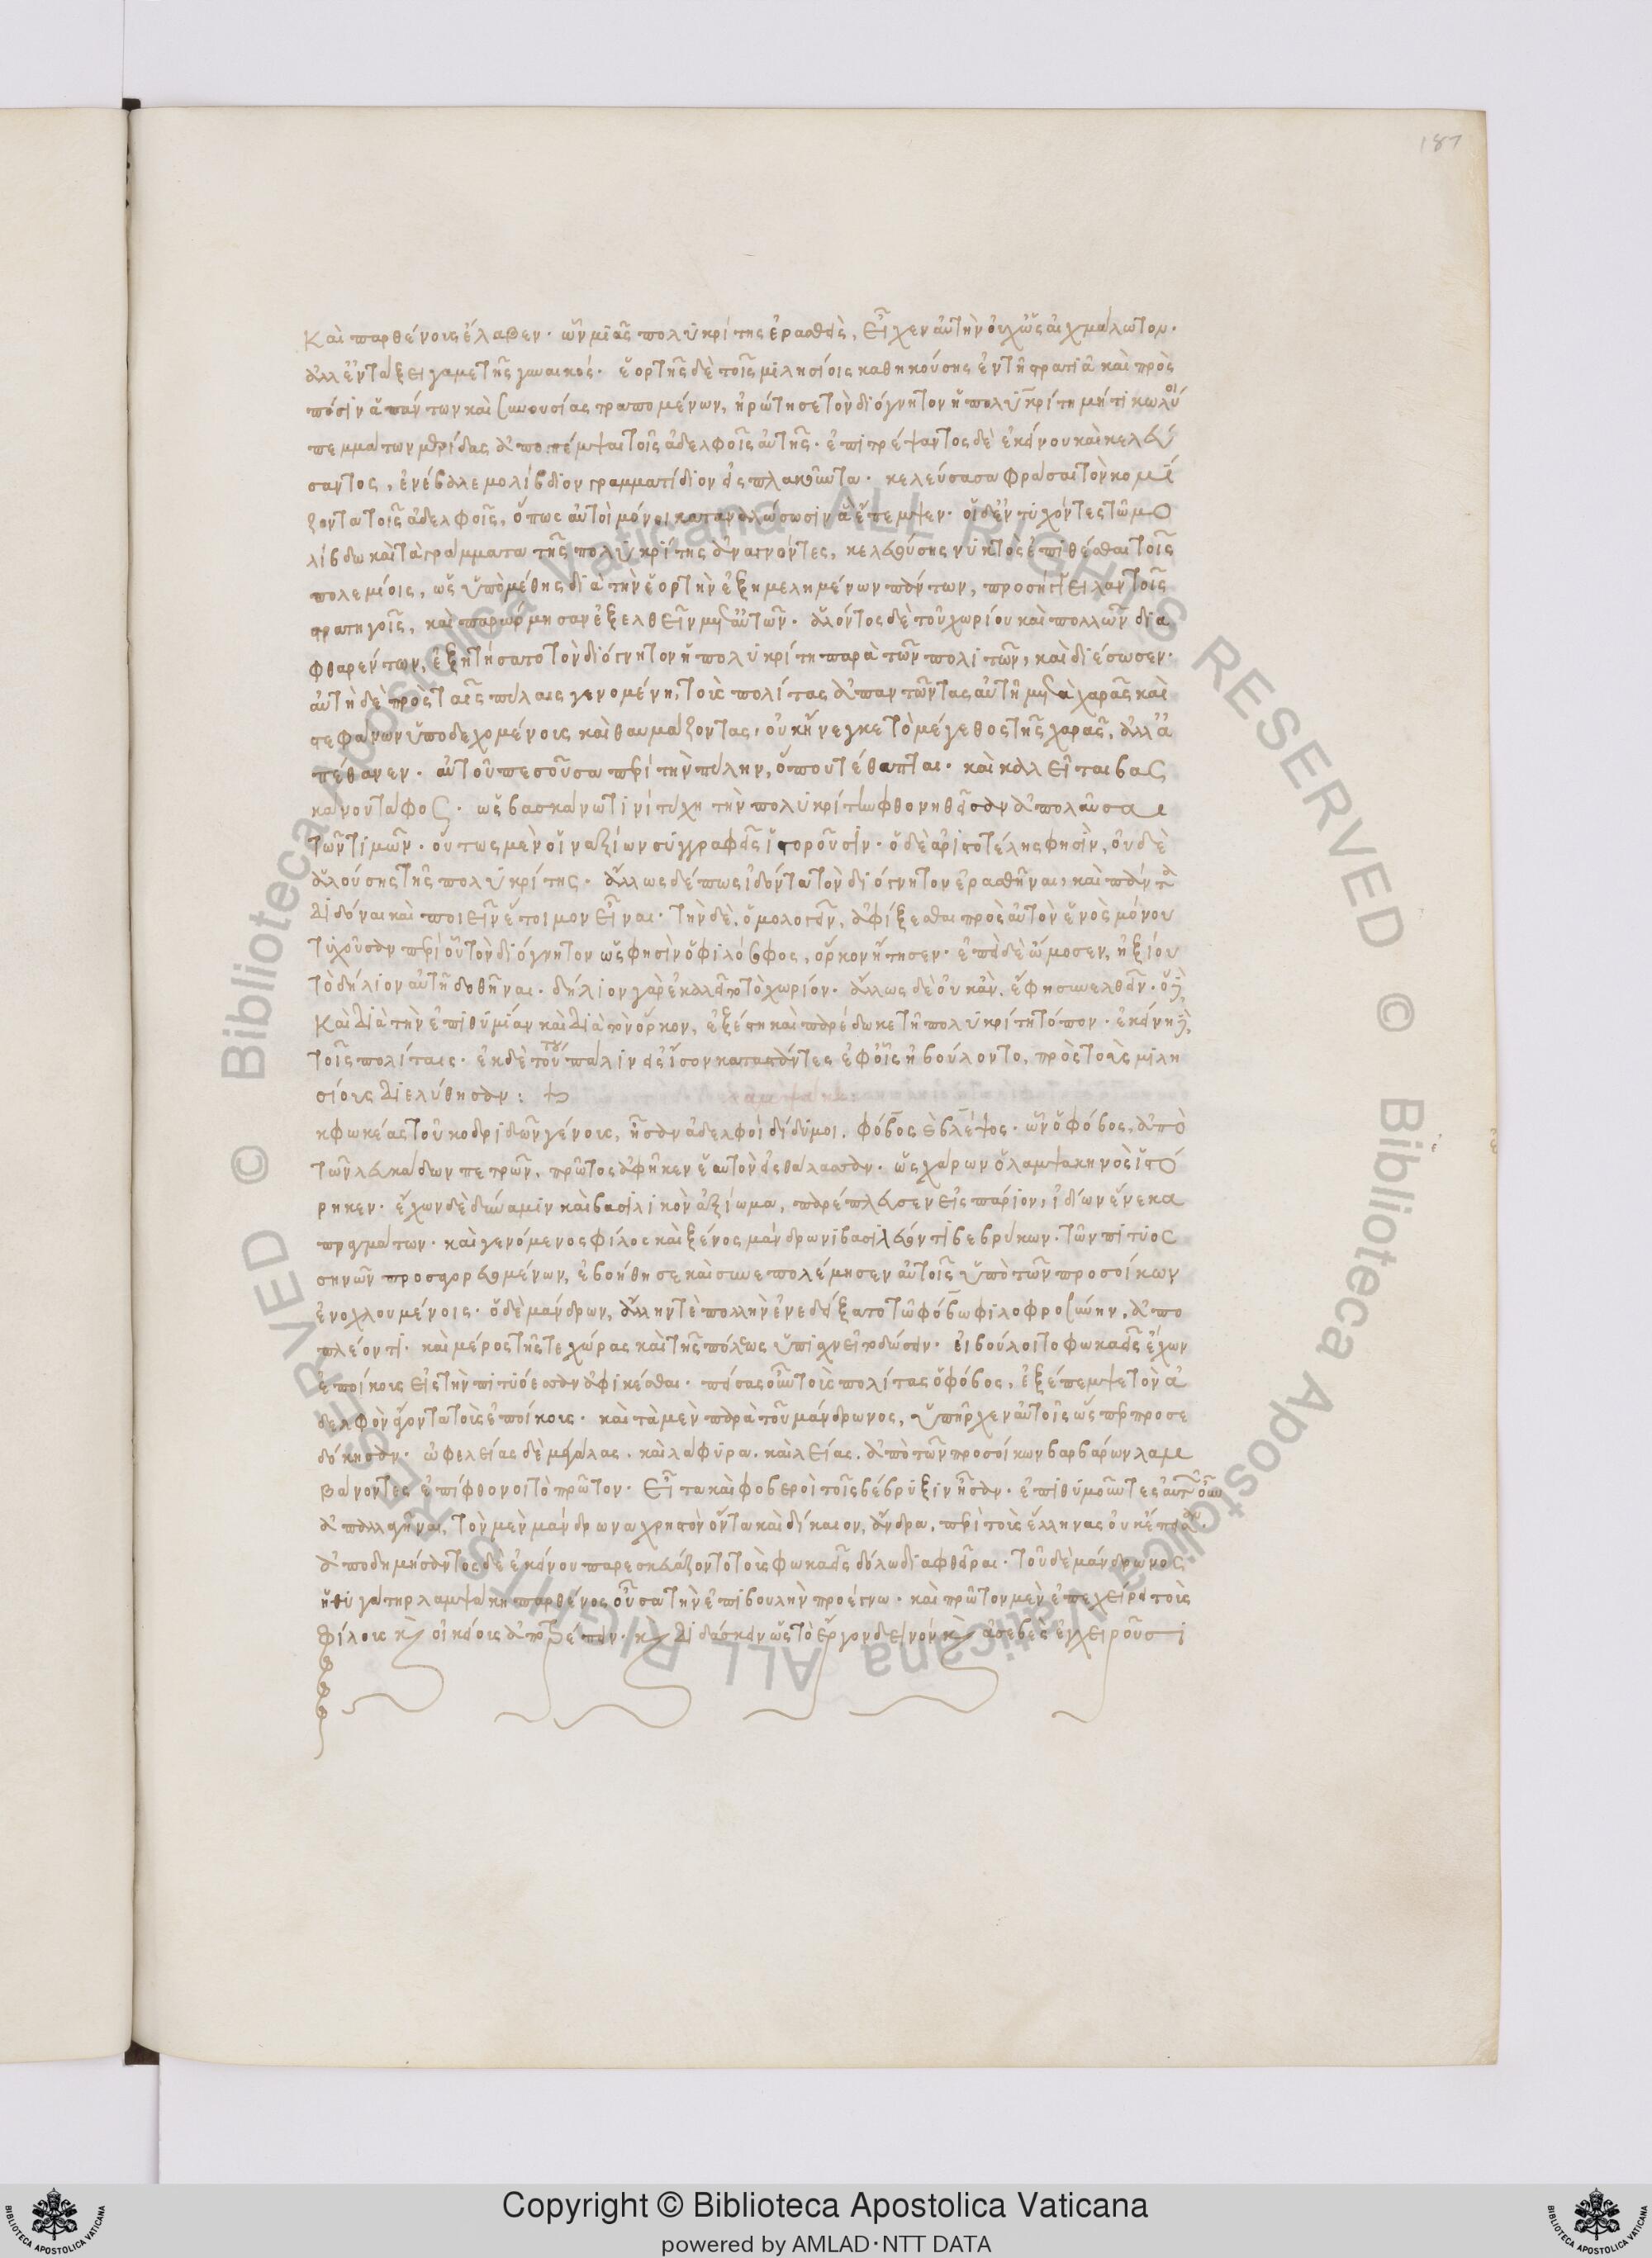 187
καὶ παρθένους ἔλαβεν· ὧν μιᾶς πολυκρίτης ἐρασθεὶς, εἶχεν αὐτὴν οὐχ ὡς αἰχμάλωτον·
ἀλλ' ἐν τάξει γαμετῆς γυναικός· ἑορτῆς δὲ τοῖς μιλησίοις καθηκούσης ἐν τῇ στρατιᾷ καὶ πρὸς
πόσιν ἁπάντων καὶ συνουσίας τραπομένων, ἠρώτησε τὸν διόγνητον ἡ πολυκρίτη μή τι κωλύοι
πεμμάτων μερίδας ἀποπέμψαι τοῖς ἀδελφοῖς αὐτῆς· ἐπιτρέψαντος δὲ ἐκείνου καὶ κελεύ
σαντος, ἐνέβαλε μολίβδιον γραμματίδιον εἰς πλακοῦντα· κελεύσασα φράσαι τὸν κομί
ζοντα τοῖς ἀδελφοῖς, ὅπως αὐτοὶ μόνοι καταναλώσωσιν ἃ ἔπεμψεν· οἱ δὲ ἐντυχόντες τῷ μο
λίβδω καὶ τὰ γράμματα τῆς πολυκρίτης ἀναγνόντες, κελευούσης νυκτὸς ἐπιθέσθαι τοῖς
πολεμίοις, ὡς ὑπὸ μέθης διὰ τὴν ἑορτὴν ἐξημελημένων πάντων, προσήγγειλαν τοῖς
στρατηγοῖς, καὶ παρώρμησαν ἐξελθεῖν μετ' αὐτῶν· ἁλόντος δὲ τοῦ χωρίου καὶ πολλῶν δια
φθαρέντων, ἐξῃτήσατο τὸν διόγνητον ἡ πολυκρίτη παρὰ τῶν πολιτῶν, καὶ διέσωσεν·
αὐτὴ δὲ πρὸς ταῖς πύλαις γενομένη, τοὺς πολίτας ἀπαντῶντας αὐτῇ μετὰ χαρᾶς καὶ
στεφάνων ὑποδεχομένους καὶ θαυμάζοντας, οὐκ ἤνεγκε τὸ μέγεθος τῆς χαρᾶς, ἀλλ' ἀ
πέθανεν· αὐτοῦ πεσοῦσα περὶ τὴν πύλην, ὅπου τέθαπται· καὶ καλεῖται βας
κάνου τάφος· ὡς βασκάνω τινὶ τύχη τὴν πολυκρίτην φθονηθεῖσαν ἀπολαῦσαι
τῶν τιμῶν· οὕτως μὲν οἱ ναξίων συγγραφεῖς ἱστοροῦσιν· ὁ δὲ ἀριστοτέλης φησὶν, οὐδὲ
ἁλούσης τῆς πολυκρίτης· ἄλλως δέ πως ἰδόντα τὸν διόγνητον ἐρασθῆναι, καὶ πάντα
διδόναι καὶ ποιεῖν ἕτοιμον εἶναι· τὴν δὲ, ὁμολογεῖν, ἀφίξεσθαι πρὸς αὐτὸν ἑνὸς μόνου
τυχοῦσαν περὶ οὗ τὸν διόγνητον ὥς φησιν ὁ φιλόσοφος, ὅρκον ᾔτησεν· ἐπεὶ δὲ ὤμοσεν, ἠξίου
τὸ δήλιον αὐτῇ δοθῆναι· δήλιον γὰρ ἐκαλεῖτο τὸ χωρίον· ἄλλως δὲ οὐκ ἂν, ἔφη συνελθεῖν· ὁ δὲ
καὶ διὰ τὴν ἐπιθυμίαν καὶ διὰ τὸν ὅρκον, ἐξέστη καὶ παρέδωκε τῇ πολυκρίτῃ τὸ τόπον· ἐκείνη δὲ
τοῖς πολίταις· ἐκ δὲ τούτου πάλιν εἰς ἴσον καταστάντες ἐφ' οἷς ἠβούλοντο, πρὸς τοὺς μιλη
σίους διελύθησαν:
κ φωκέας τοῦ κοδριδῶν γένους, ἦσαν ἀδελφοὶ δίδυμοι. φόβος καὶ βλέψος· ὧν ὁ φόβος, ἀπὸ
τῶν λευκάδων πετρῶν, πρῶτος ἀφῆκεν ἑαυτὸν εἰς θάλασσαν· ὡς χάρων ὁ λαμψακηνὸς ἱστό
ρηκεν· ἔχων δὲ δύναμιν καὶ βασιλικὸν ἀξίωμα, παρέπλευσεν εἰς πάριον, ἰδίων ἕνεκα
πραγμάτων· καὶ γενόμενος φίλος καὶ ξένος μάνδρωνι βασιλεύοντι βεβρύκων. τῶν πιτυος
σηνῶν προσαγορευομένων, ἐβοήθησε καὶ συνεπολέμησεν αὐτοῖς ὑπὸ τῶν προσοίκων
ἐνοχλουμένοις· ὁ δὲ μάνδρων, ἄλλην τὲ πολλὴν ἐνεδείξατο τῷ φόβω φιλοφροσύνην, ἀπο
πλέοντι· καὶ μέρος τῆς τε χώρας καὶ τῆς πόλεως ὑπισχνεῖτο δώσειν· εἰ βούλοιτο φωκαεῖς ἔχων
ἐποίκους εἰς τὴν πιτυόεσσαν ἀφικέσθαι· πείσας οὖν τοὺς πολίτας ὁ φόβος, ἐξέπεμψε τὸν ἀ
δελφὸν ἄγοντα τοὺς ἐποίκους· καὶ τὰ μὲν παρὰ τοῦ μάνδρωνος, ὑπῆρχεν αὐτοῖς ὥσπερ προσε
δόκησαν· ὠφελείας δὲ μεγάλας. καὶ λάφυρα. καὶ λείας. ἀπὸ τῶν προσοίκων βαρβάρων λαμ
βάνοντες ἐπίφθονοι τὸ πρῶτον· εἶτα καὶ φοβεροὶ τοῖς βέβρυξιν ἦσαν· ἐπιθυμοῦντες αὐτῶν οὖν
ἀπαλλαγῆναι, τὸν μὲν μάνδρωνα χρηστὸν ὄντα καὶ δίκαιον, ἄνδρα, περὶ τοὺς ἕλληνας οὐκ ἔπεισαν·
ἀποδημήσαντος δὲ ἐκείνου παρεσκευάζοντο τοὺς φωκαεῖς δόλω διαφθεῖραι· τοῦ δὲ μάνδρωνος
ἡ θυγάτηρ λαμψάκη παρθένος οὖσα τὴν ἐπιβουλὴν προέγνω· καὶ πρῶτον μὲν ἐπεχείρει τοὺς
φίλους καὶ οἰκείους ἀποτρέπειν· καὶ διδάσκειν ὡς τὸ ἔργον δεινόν καὶ ἀσεβὲς ἐγχειροῦσι
Copyright © Biblioteca Apostolica Vaticana
powered by AMLAD·NTT DATA